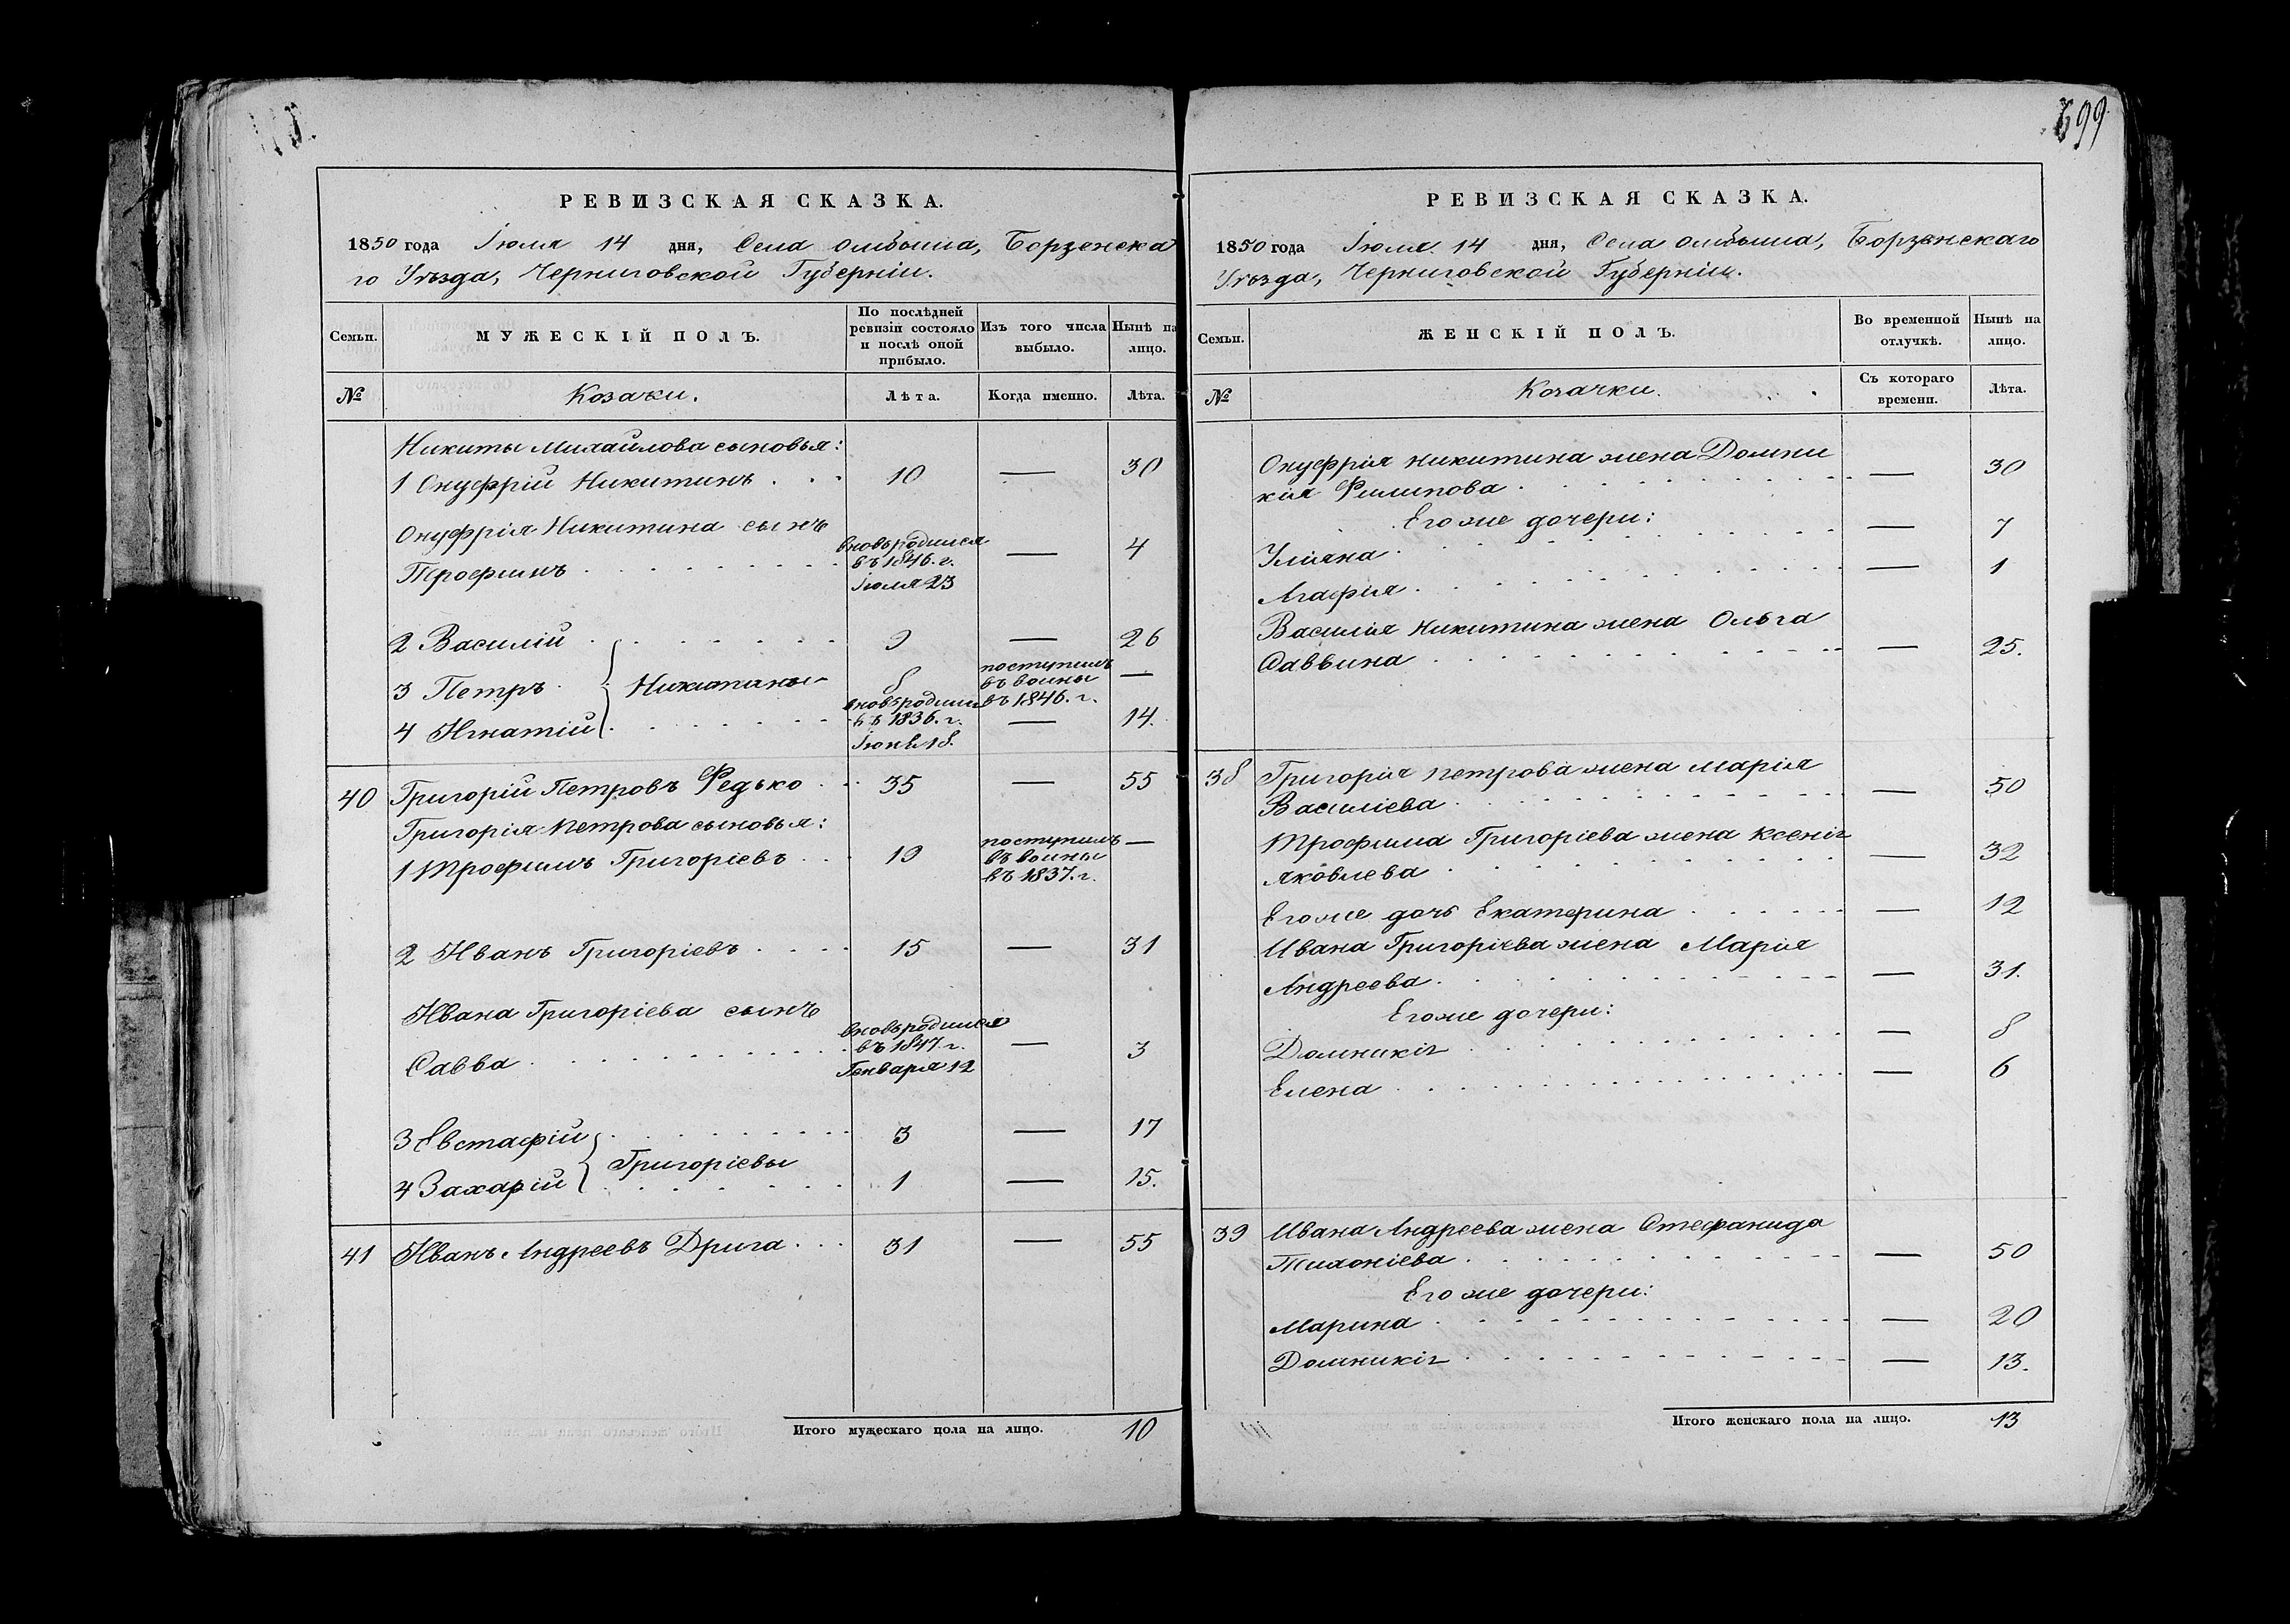 РЕВИЗСКАЯ СКАЗКА.
1850 года Іюля 14 дня, Села Омбыша, Борзенска
го Уѣзда, Черниговской Губерніи.
Семьи.
МУЖЕСКІЙ ПОЛЪ.
По послѣдней
ревизіи состояло
и послѣ оной
прибыло.
Изъ того числа
выбыло.
Нынѣ на
лицо.
№
Козаки.
Лѣта.
Когда именно.
Лѣта.
Никиты Михайлова сыновья:
1 Онуфрій Никитинъ . . . 10 — 30
Онуфрія Никитина сынъ
Трофимъ
вновь родился
въ 1846. г.
Іюля 23
— 4
2 Василій 9 — 26
3 Петръ Никитины 8
поступилъ
въ воины
въ 1846. г.
—
4 Игнатій
вновь родился
въ 1836. г.
Іюня 18.
— 14.
40 Григорій Петровъ Редько . . 35 — 55
Григорія Петрова сыновья:
1 Трофимъ Григоріевъ . . . 19
поступилъ
въ воины
въ 1837. г.
—
2 Иванъ Григоріевъ . . . . 15 — 31
Ивана Григоріева сынъ
Савва
вновь родился
въ 1847. г.
Генваря 12
— 3
3 Евстафій 3 — 17
Григоріевы
4 Захарій 1 — 15.
41 Иванъ Андреевъ Дрига . . . 31 — 55
Итого мужескаго пола на лицо. 10
699
РЕВИЗСКАЯ СКАЗКА.
1850 года Іюля 14 дня, Села Омбыша, Борзенскаго
Уѣзда, Черниговской Губерніи.
Семьи.
ЖЕНСКІЙ ПОЛЪ.
Во временной
отлучкѣ.
Нынѣ на
лицо.
№
Козачки.
Съ котораго
времени.
Лѣта.
Онуфрія Никитина жена Домни
кія Филипова — 30
Его же дочери:
Уліяна — 7
Агафія — 1
Василія Никитина жена Ольга
Саввина — 25.
38 Григорія Петрова жена Марія
Василіева — 50
Трофима Григоріева жена Ксенія
Яковлева — 32
Его же дочь Екатерина — 12
Ивана Григоріева жена Марія
Андреева — 31.
Его же дочери:
Домникія — 8
Елена — 6
39 Ивана Андреева жена Стефанида
Тихоніева — 50
Его же дочери:
Марина — 20
Домникія — 13.
Итого женскаго пола на лицо. 13